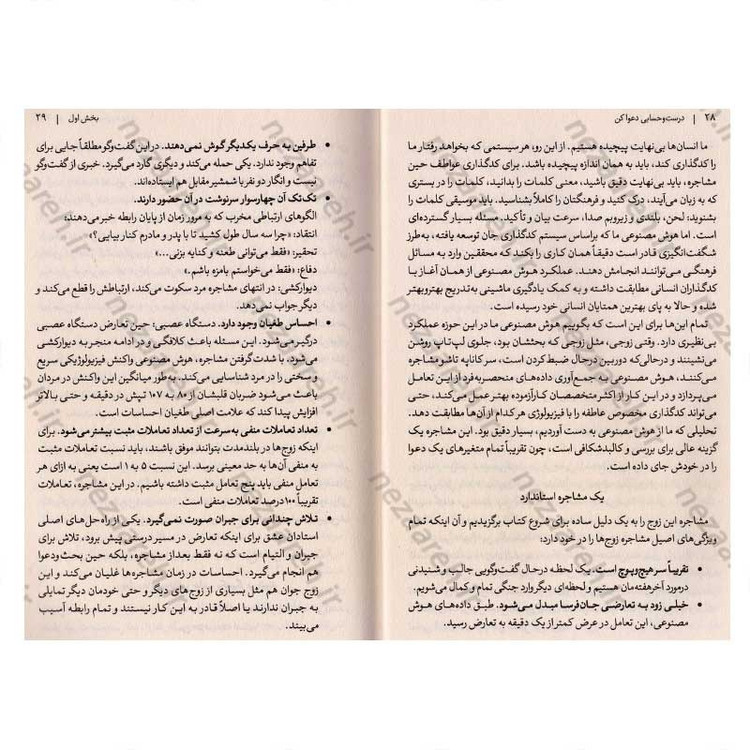 ۲۸ | درست‌وحسابی دعوا کن
ما انسان‌ها بی‌نهایت پیچیده هستیم. از این رو، هر سیستمی که بخواهد رفتار ما
را کدگذاری کند، باید به همان اندازه پیچیده باشد. برای کدگذاری عواطف حین
مشاجره، باید بی‌نهایت دقیق باشید، معنی کلمات را بدانید، کلمات را در بستری
که به زبان می‌آیند، درک کنید و فرهنگتان را کاملاً بشناسید. باید موسیقی کلمات را
بشنوید؛ لحن، بلندی و زیروبم صدا، سرعت بیان و تأکید. مسئله بسیار گسترده‌ای
است. اما هوش مصنوعی ما که براساس سیستم کدگذاری جان توسعه یافته، به‌طرز
شگفت‌انگیزی قادر است دقیقاً همان کاری را بکند که محققین وارد به مسائل
فرهنگی می‌توانند انجامش دهند. عملکرد هوش مصنوعی از همان آغاز با
کدگذاران انسانی مطابقت داشته و به کمک یادگیری ماشینی به‌تدریج بهتروبهتر
شده و حالا به پای بهترین همتایان انسانی خود رسیده است.
تمام این‌ها برای این است که بگوییم هوش مصنوعی ما در این حوزه عملکرد
بی‌نظیری دارد. وقتی زوجی، مثل زوجی که بحثشان بود، جلوی لپ‌تاپ روشن
می‌نشینند و درحالی‌که دوربین درحال ضبط کردن است، سر کاناپه تاشو مشاجره
می‌کنند، هوش مصنوعی به جمع‌آوری داده‌های منحصربه‌فرد از این تعامل
می‌پردازد و در این کار از اکثر متخصصان کارآزموده بهتر عمل می‌کند، حتی
می‌تواند کدگذاری مخصوص عاطفه را با فیزیولوژی هرکدام از آن‌ها مطابقت دهد.
تحلیلی که ما از هوش مصنوعی به دست آوردیم، بسیار دقیق بود. این مشاجره یک
گزینه عالی برای بررسی و کالبدشکافی است، چون تقریباً تمام متغیرهای یک دعوا
را در خودش جای داده است.
یک مشاجره استاندارد
مشاجره این زوج را به یک دلیل ساده برای شروع کتاب برگزیدیم و آن اینکه تمام
ویژگی‌های اصیل مشاجره زوج‌ها را در خود دارد:
• تقریباً سر هیچ‌وپوچ است. یک لحظه درحال گفت‌وگویی جالب و شنیدنی
درمورد آخرهفته‌مان هستیم و لحظه‌ای دیگر وارد جنگی تمام و کمال می‌شویم.
• خیلی زود به تعارضی جان‌فرسا مبدل می‌شود. طبق داده‌های هوش
مصنوعی، این تعامل در عرض کمتر از یک دقیقه به تعارض رسید.
بخش اول | ۲۹
• طرفین به حرف یکدیگر گوش نمی‌دهند. در این گفت‌وگو مطلقاً جایی برای
تفاهم وجود ندارد. یکی حمله می‌کند و دیگری گارد می‌گیرد. خبری از گفت‌وگو
نیست و انگار دو نفر با شمشیر مقابل هم ایستاده‌اند.
• تک‌تک آن چهارسوار سرنوشت در آن حضور دارند.
الگوهای ارتباطی مخرب که به مرور زمان از پایان رابطه خبر می‌دهند:
انتقاد: «چرا سه سال طول کشید تا با پدر و مادرم کنار بیایی؟»
تحقیر: «فقط می‌توانی طعنه و کنایه بزنی...»
دفاع: «فقط می‌خواستم بامزه باشم.»
دیوارکشی: در انتهای مشاجره مرد سکوت می‌کند، ارتباطش را قطع می‌کند و
دیگر جواب نمی‌دهد.
• احساس طغیان وجود دارد. دستگاه عصبی؛ حین تعارض دستگاه عصبی
درگیر می‌شود. این مسئله باعث کلافگی و در ادامه منجر به دیوارکشی
می‌شود. با شدت‌گرفتن مشاجره، هوش مصنوعی واکنش فیزیولوژیکی سریع
و سختی را در مرد شناسایی می‌کند. به‌طور میانگین این واکنش در مردان
باعث می‌شود ضربان قلبشان از ۸۰ به ۱۰۷ تپش در دقیقه و حتی بالاتر
افزایش پیدا کند که علامت اصلی طغیان احساسات است.
• تعداد تعاملات منفی به سرعت از تعداد تعاملات مثبت بیشتر می‌شود. برای
اینکه زوج‌ها در بلندمدت بتوانند موفق باشند، باید نسبت تعاملات مثبت
به منفی آن‌ها به حد معینی برسد. این نسبت ۵ به ۱ است یعنی به ازای هر
تعامل منفی باید پنج تعامل مثبت داشته باشیم. در این مشاجره، تعاملات
تقریباً ۱۰۰درصد تعاملات منفی است.
• تلاش چندانی برای جبران صورت نمی‌گیرد. یکی از راه‌حل‌های اصلی
استادان عشق برای اینکه تعارض در مسیر درستی پیش برود، تلاش برای
جبران و التیام است که نه فقط بعد از مشاجره، بلکه حین بحث‌ودعوا
هم انجام می‌گیرد. احساسات در زمان مشاجره‌ها غلیان می‌کند و این
زوج جوان هم مثل بسیاری از زوج‌های دیگر و حتی خودمان دیگر تمایلی
به جبران ندارند یا اصلاً قادر به این کار نیستند و تمام رابطه آسیب
می‌بیند.
nezzareh.ir